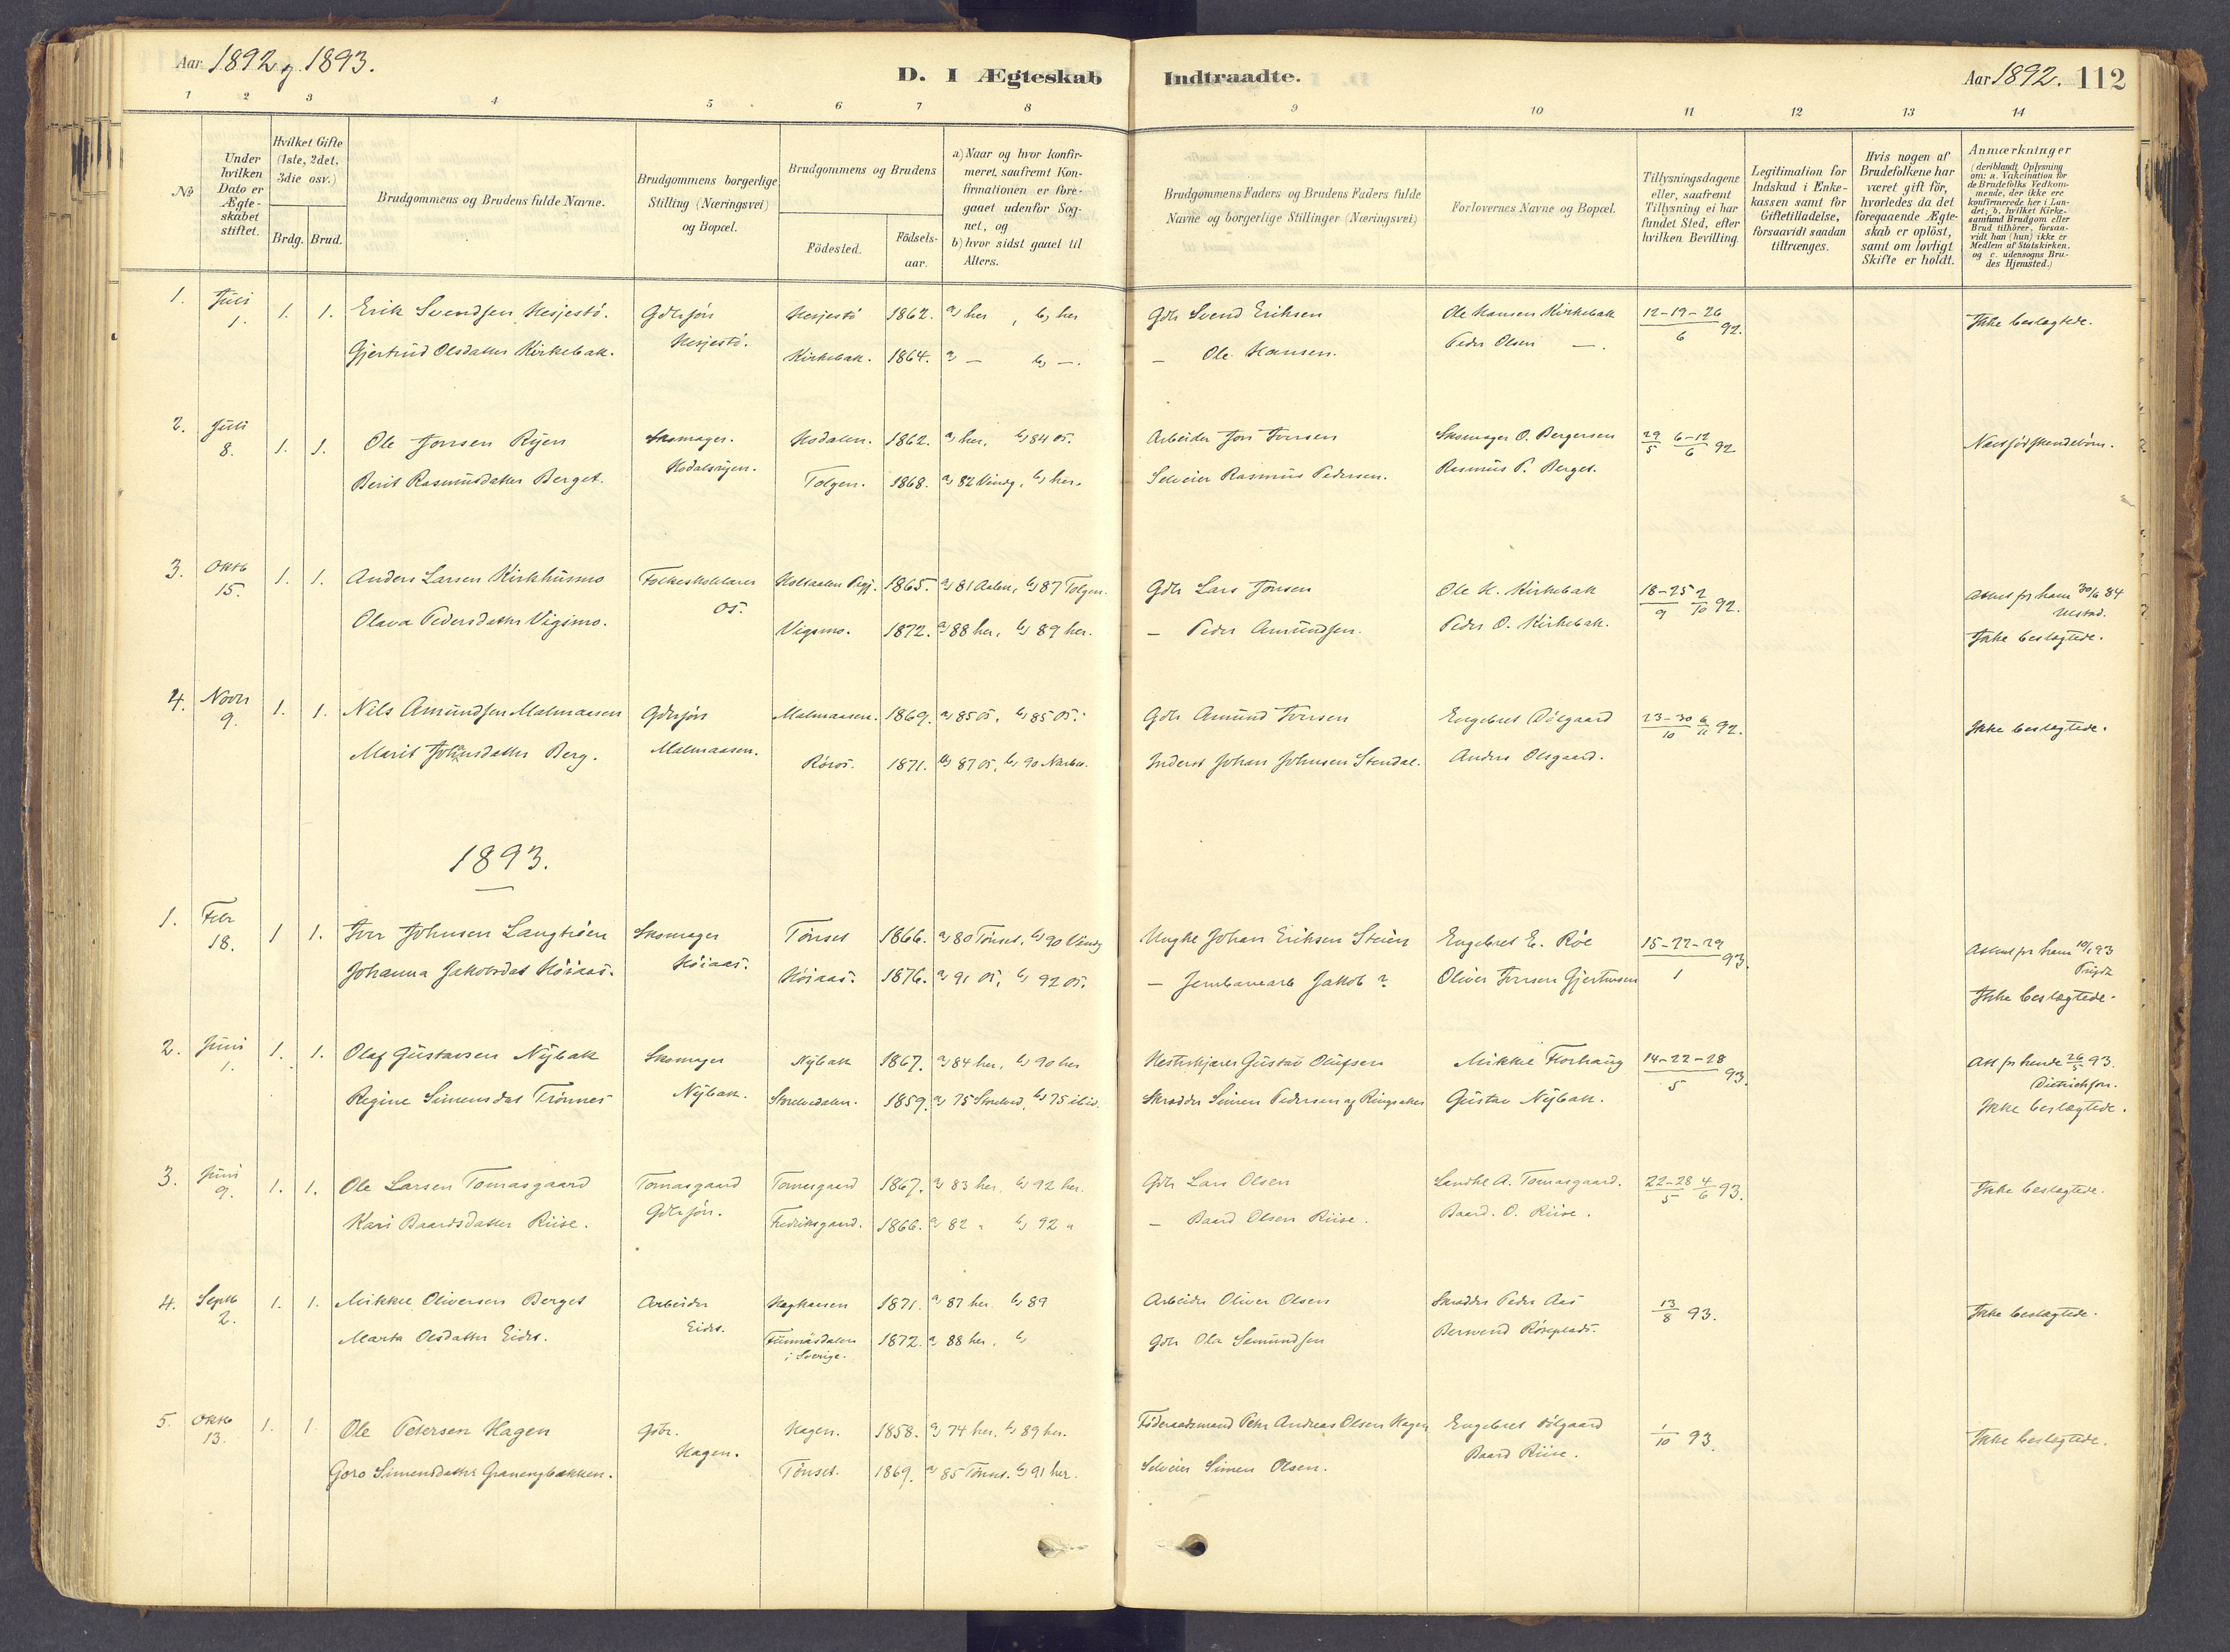 Aar 1892 og 1893.
D. I Ægteskab Indtraadte.
Aar 1892. 112
1 2 3 4 5 6 7 8 9 10 11 12 13 14
No
Under hvilken Dato er Ægte- skabet stiftet.
Hvilket Gifte (1ste, 2det, 3die osv.)
Brdg. Brud.
Brudgommens og Brudens fulde Navne.
Brudgommens borgerlige Stilling (Næringsvei) og Bopæl.
Brudgommens og Brudens
Födested.
Födsels- aar.
a) Naar og hvor konfir- meret, saafremt Kon- firmationen er fore- gaaet udenfor Sog- net, og b) hvor sidst gaaet til Alters.
Brudgommens Faders og Brudens Faders fulde Navne og borgerlige Stillinger (Næringsvei)
Forlovernes Navne og Bopæl.
Tillysningsdagene eller, saafremt Tillysning ei har fundet Sted, efter hvilken Bevilling.
Legitimation for Indskud i Enke- kassen samt for Giftetilladelse, forsaavidt saadan tiltrænges.
Hvis nogen af Brudefolkene har været gift för, hvorledes da det foregaaende Ægte- skab er oplöst, samt om lovligt Skifte er holdt.
Anmærkninger (deriblandt Oplysning om: a. Vakcination for de Brudefolks Vedkom- mende, der ikke ere konfirmerede her i Lan- det; b. hvilket Kirke- samfund Brudgom eller Brud tilhörer, forsaa- vidt han (hun) ikke er Medlem af Statskirken, og c. udensogns Bru- des Hjemsted.)
1. Juli 1. 1. 1. Erik Svendsen Hesjestö. Gdbrsön Hesjestö. Hesjestö 1862. a) her, b) her Gdbr Svend Eriksen Ole Hansen Kirkebak 12-19-26/6 92. Ikke beslægtede.
Gjertrud Olsdatter Kirkebak. Kirkebak. 1864. a) — b) —. — Ole Hansen. Peder Olsen —.
2. Juli 8. 1. 1. Ole Jonsen Ryen Skomager. Hodalsryen. Hodalen. 1862. a) her. b) 84 Os. Arbeider Jon Jonsen Skomager O. Bergersen 29/5 6-12/6 92 Næstsödskendebörn.
Berit Rasmusdatter Berget. Tolgen. 1868. a) 82 Vingr, b) her. Selveier Rasmus Pedersen. Rasmus P. Berget.
3. Oktb 15. 1. 1. Anders Larsen Kirkhusmo Folkeskolelærer Os. Holtaalen Prgj. 1865. a) 81 Aalen, b) 87 Tolgen. Gdbr Lars Jonsen Ole H. Kirkebak 18-25/9 2/10 92. Attest for ham 30/6 84
Olava Pedersdatter Vigsmo. Vigsmo. 1872. a) 88 her, b) 89 her. — Peder Amundsen. Peder O. Kirkebak. Ikke beslægtede.
4. Novbr 9. 1. 1. Nils Amundsen Malmaasen Gdbrsön Malmaasen. Malmaasen. 1869. a) 85 Os, b) 85 Os. Gdbr Amund Iversen Engebret Dölgaard 23-30/10 6/11 92. Ikke beslægtede.
Marit Johnsdatter Berg. Röros. 1871. b) 87 Os, b) 90 Narbu. Inderst Johan Johnsen Stendal. Anders Olsgaard.
1893.
1. Febr 18. 1 1. Iver Johnsen Langtröen Skomager Höiaas. Tönset 1866. a) 80 Tönset, b) 90 Vingr Ungke Johan Eriksen Steien Engebret E. Röe 15-22-29/1 93. Attest for ham 10/1 93
Johanna Jakobsdat Höiaas. Höiaas. 1876. a) 91 Os, b) 92 Os. — Jernbanearb Jakob ? Oliver Iversen Gjertrusen Ikke beslægtede.
2. Juni 1. 1. 1. Olaf Gustavsen Nybak Skomager Nybak. Nybak 1867. a) 84 her, b) 90 her Hesteskjærer Gustav Olufsen Mikkel Florhaug 14-22-28/5 93. Att for hende 26/5 93. Dietrichson.
Regine Simensdat Trönnes Storelvedalen. 1859. a) 75 Storelved, b) 75 ibid. Skrædder Simen Pedersen af Ringsaker Gustav Nybak. Ikke beslægtede.
3. Juni 9. 1. 1. Ole Larsen Tomasgaard Tomasgaard Gdbrsön. Tomasgaard 1867. a) 83 her, b) 92 her. Gdbr Lars Olsen Landhl A. Tomasgaard. 22-28/5 4/6 93. Ikke beslægtede.
Kari Baardsdatter Riise. Fredriksgaard. 1866. a) 82 " b) 92 " — Baard Olsen Riise. Baard O. Riise.
4. Septb 2. 1. 1. Mikkel Oliversen Berget Arbeider Eidet. Haghaugen 1871. a) 87 her, b) 89 Arbeider Oliver Olsen Skrædder Peder Aas 13/8 93. Ikke beslægtede.
Marta Olsdatter Eidet. Funnäsdalen i Sverige. 1872. a) 88 her, b) Gdbr Ola Semundsen Bersvend Röseplads.
5. Oktb 13. 1. 1 Ole Petersen Hagen Gdbr. Hagen. Hagen. 1858. a) 74 her, b) 89 her. Föderaadsmand Peter Andreas Olsen Hagen Engebret Dölgaard 1/10 93. Ikke beslægtede.
Goro Simensdatter Granengbakken. Tönset. 1869. a) 85 Tönset. b) 91 her. Selveier Simen Olsen. Baard Riise.